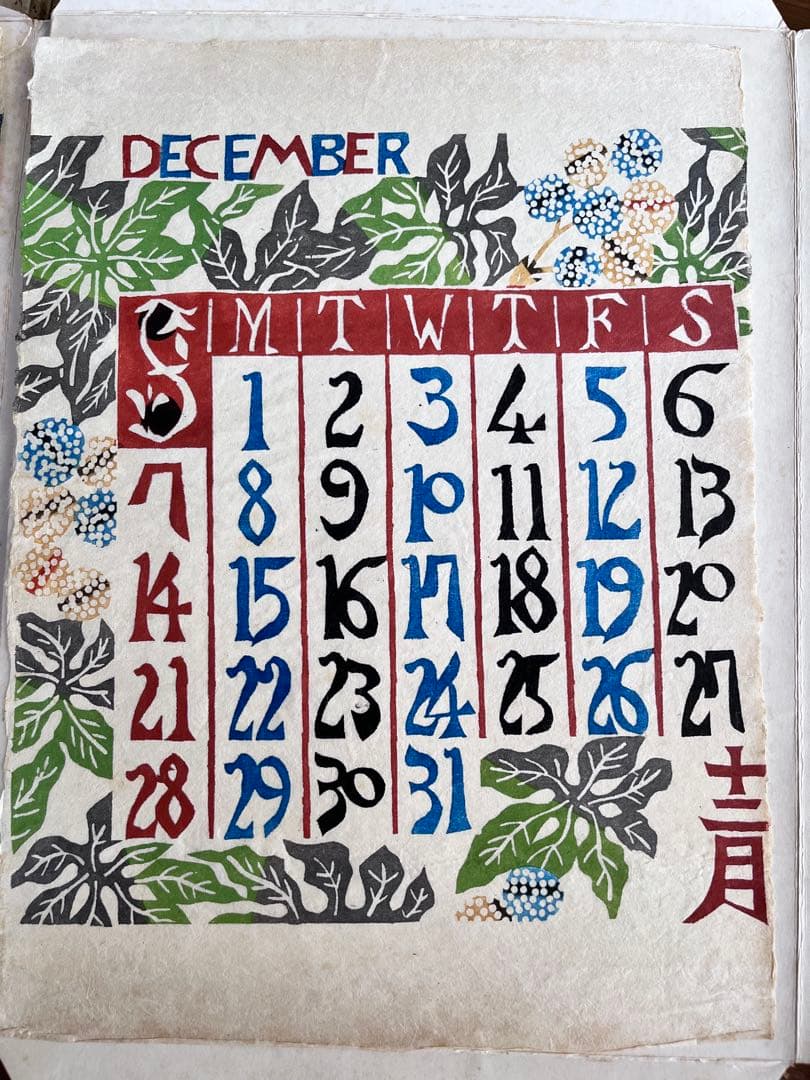 DECEMBER
S M T W T F S
1 2 3 4 5 6
7 8 9 10 11 12 13
14 15 16 17 18 19 20
21 22 23 24 25 26 27
28 29 30 31
十二月